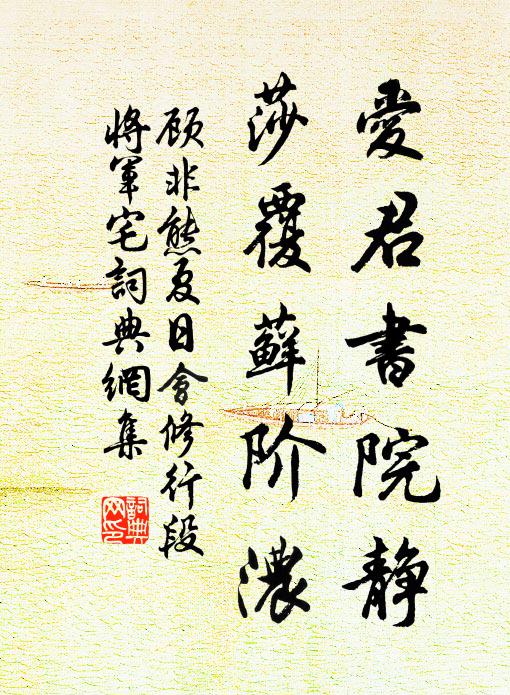 愛君書院静
莎覆蘚阶濃
顾非熊夏日會修行段
將軍宅詞典網集
詞典
网印